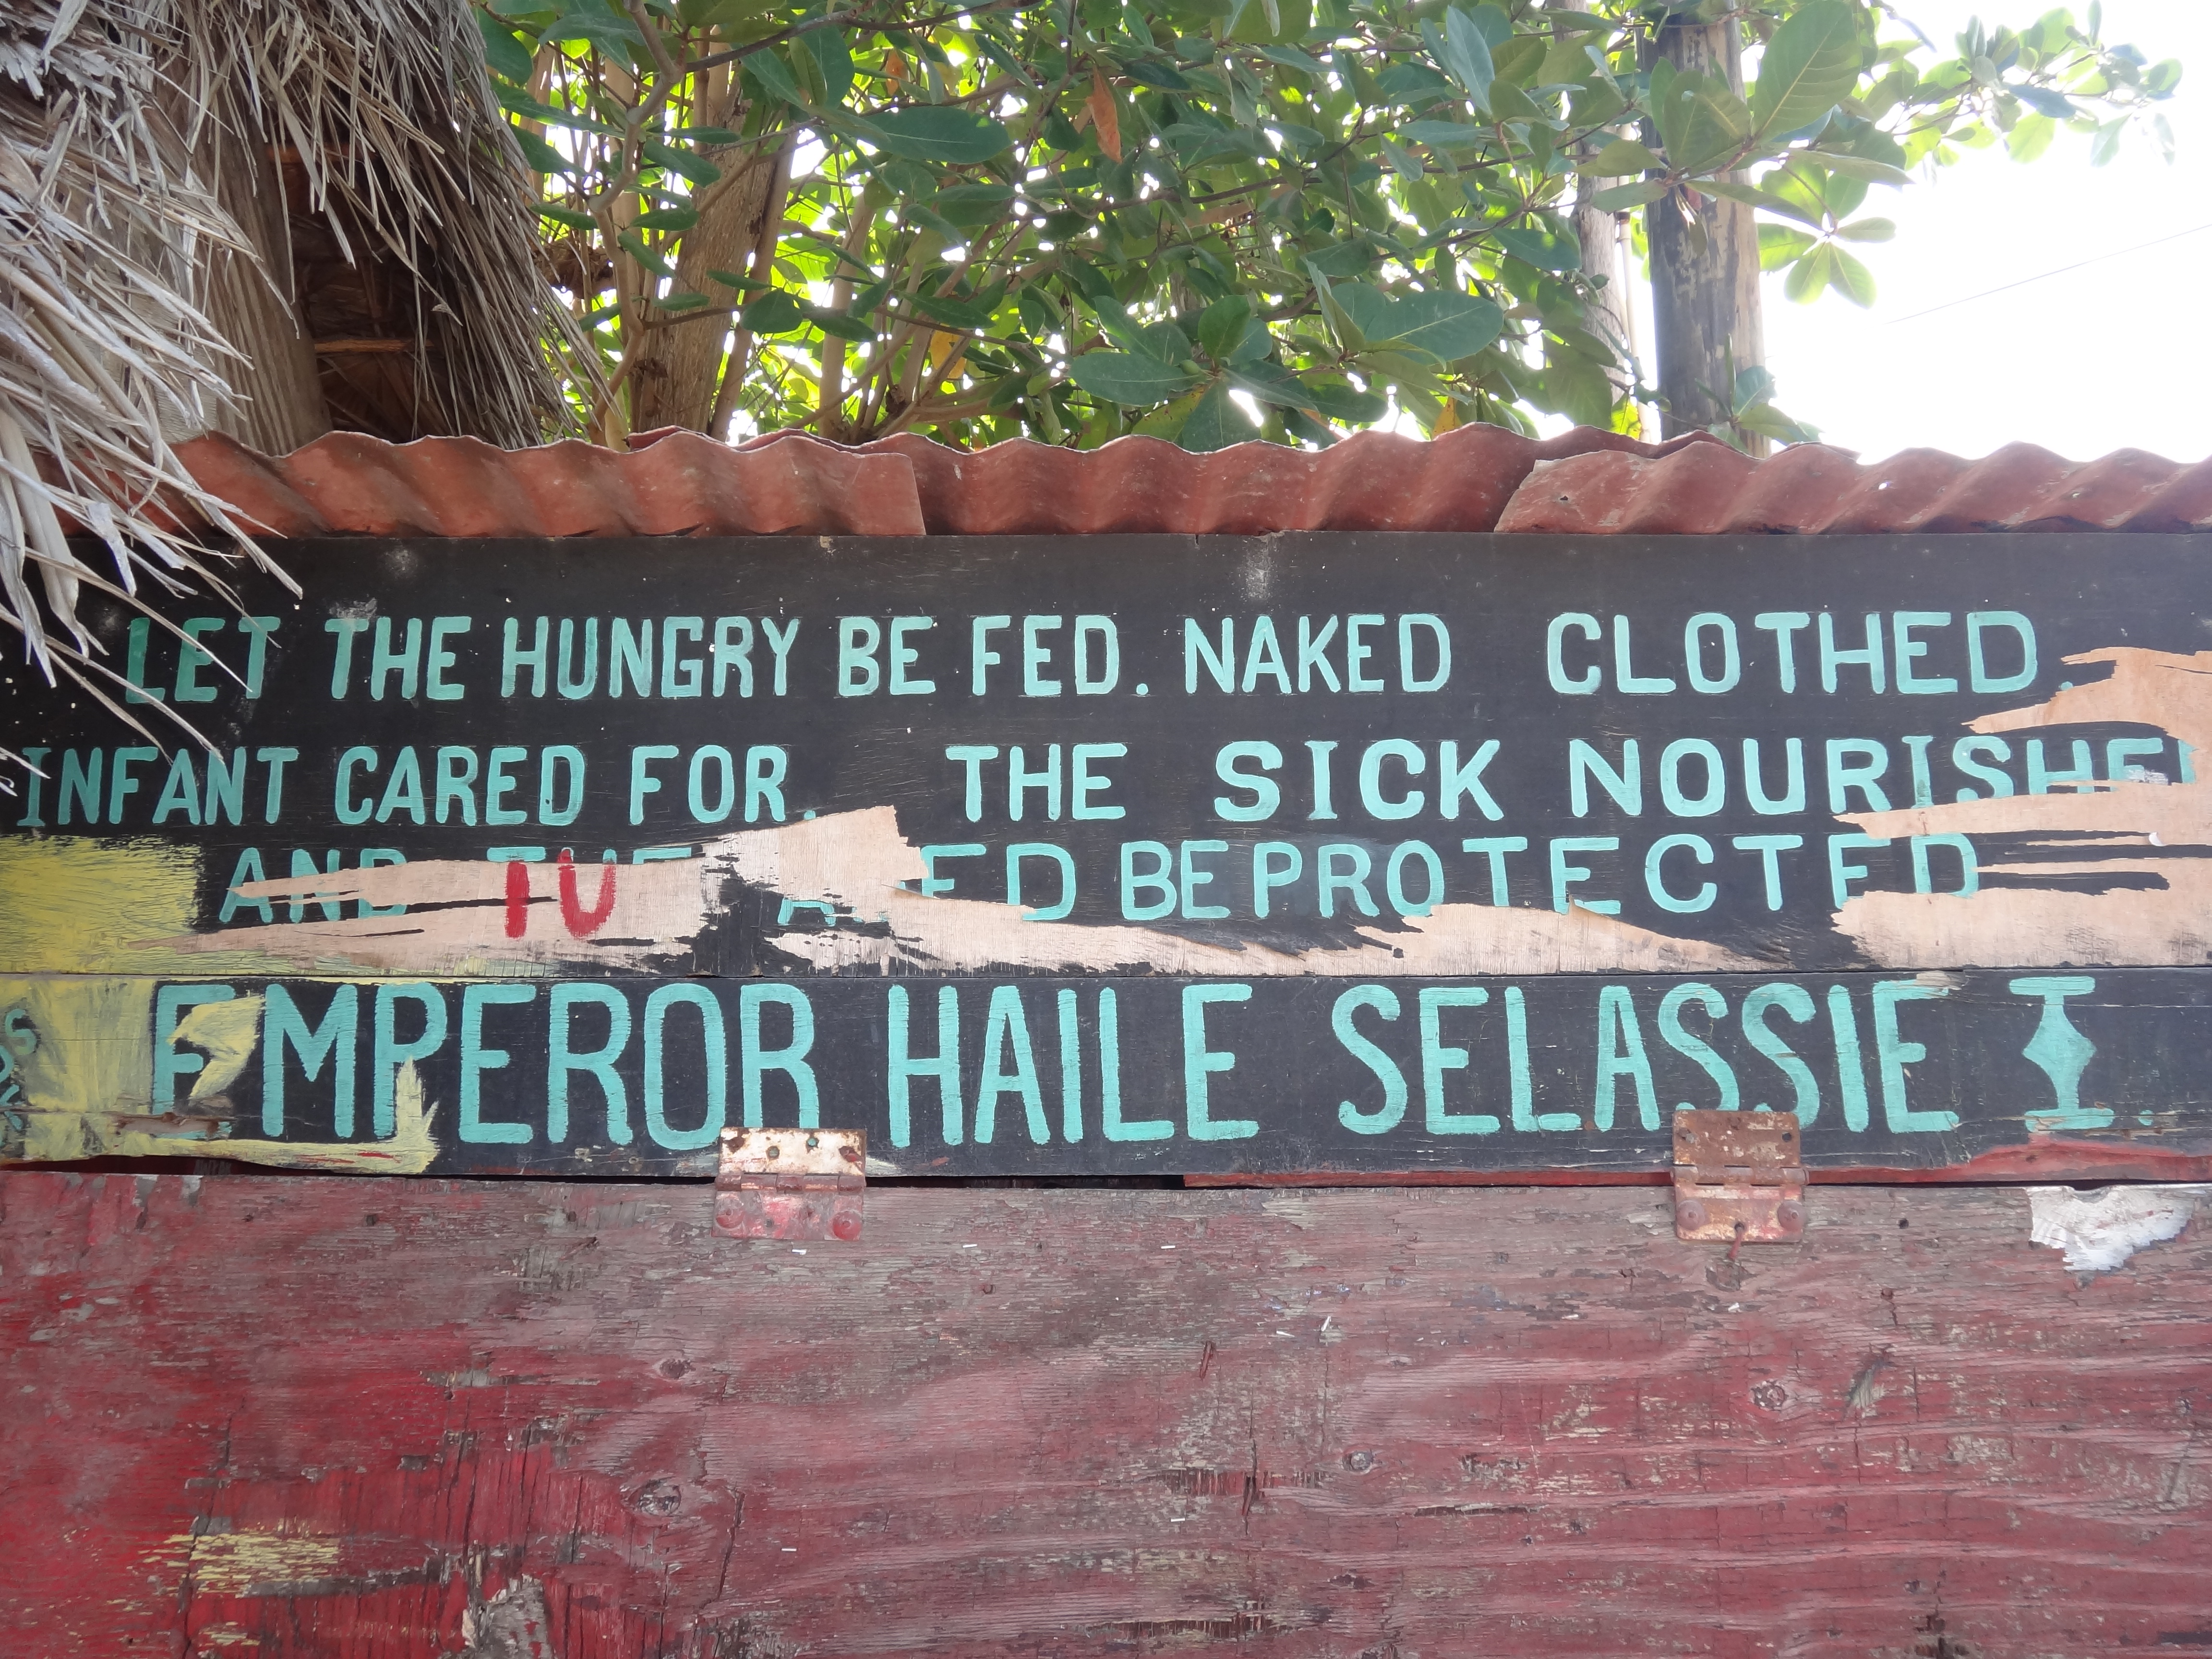 LET THE HUNGRY BE FED. NAKED CLOTHED.
INFANT CARED FOR. THE SICK NOURISHED
AND THE AGED BE PROTECTED
TU
EMPEROR HAILE SELASSIE I.